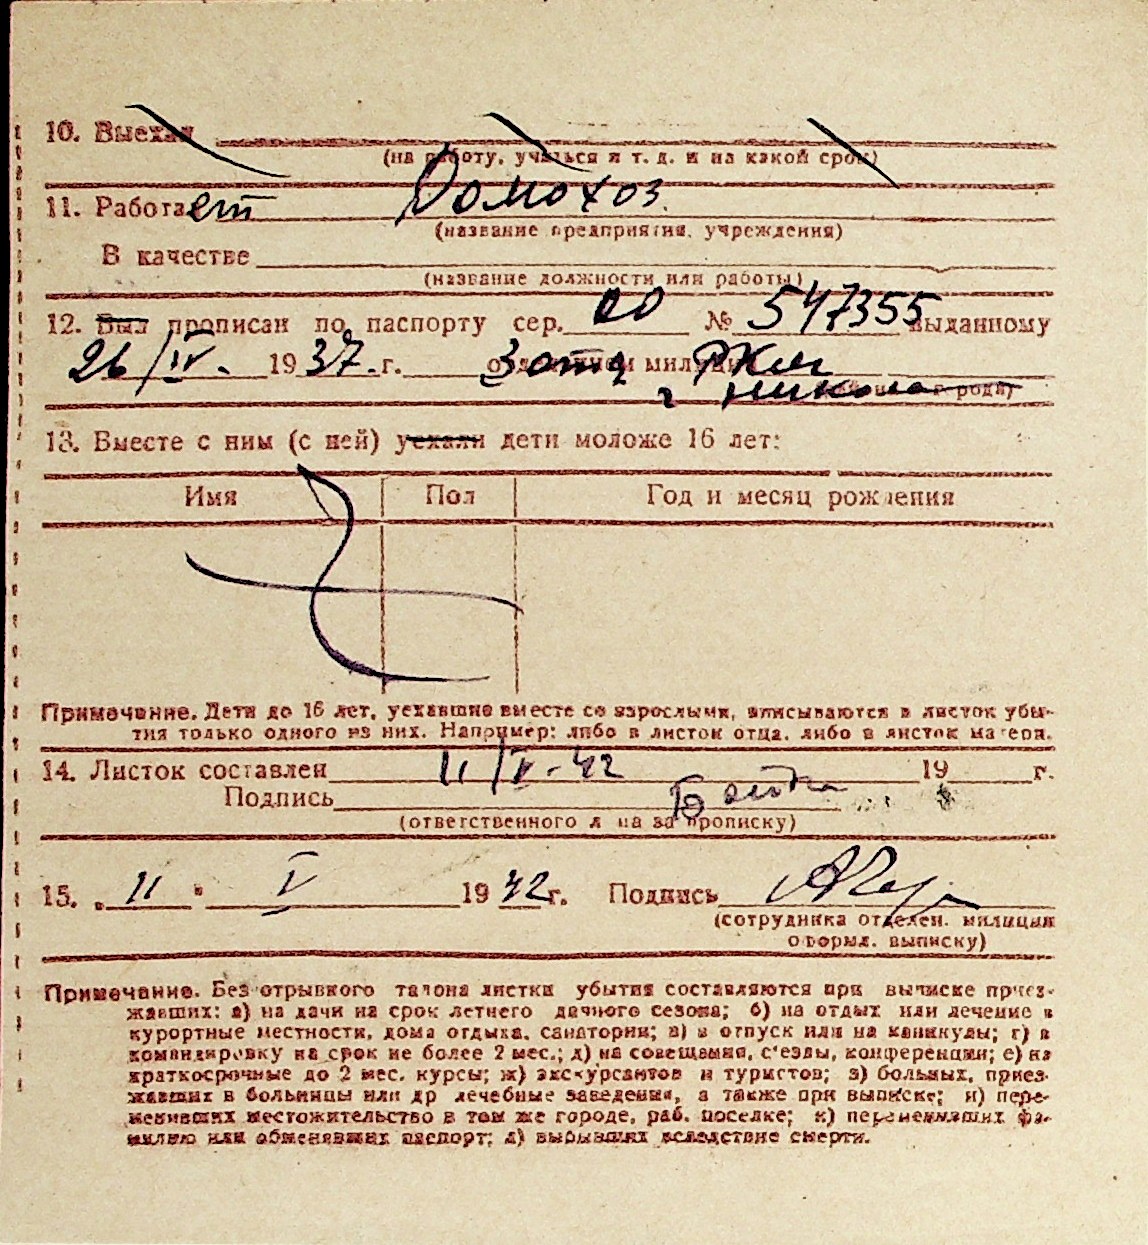 10. Выехал
(на работу, учиться и т. д. и на какой срок)
11. Работает Домохоз.
(название предприятия, учреждения)
В качестве
(название должности или работы)
12. Был прописан по паспорту сер. № 547355 выданному
26/IV. 1937.г. 3 отд отделением милиции РКМ
г Никола
13. Вместе с ним (с ней) уехали дети моложе 16 лет:
Имя Пол Год и месяц рождения
Примечание. Дети до 16 лет, уехавшие вместе со взрослыми, вписываются в листок убы-
тия только одного из них. Например: либо в листок отца, либо в листок матери.
14. Листок составлен 11/V-42 19 г.
Подпись
(ответственного лица за прописку)
15. „11" V 1942г. Подпись
(сотрудника отделен. милиции
оформл. выписку)
Примечание. Без отрывного талона листки убытия составляются при выписке приез-
жавших: а) на дачи на срок летнего дачного сезона; б) на отдых или лечение в
курортные местности, дома отдыха, санатории; в) в отпуск или на каникулы; г) в
командировку на срок не более 2 мес.; д) на совещания, с'езды, конференции; е) на
краткосрочные до 2 мес. курсы; ж) экскурсантов и туристов; з) больных, приез-
жавших в больницы или др лечебные заведения, а также при выписке; и) пере-
менивших местожительство в том же городе, раб. поселке; к) переменивших фа-
милию или обменявших паспорт; л) выбывших вследствие смерти.